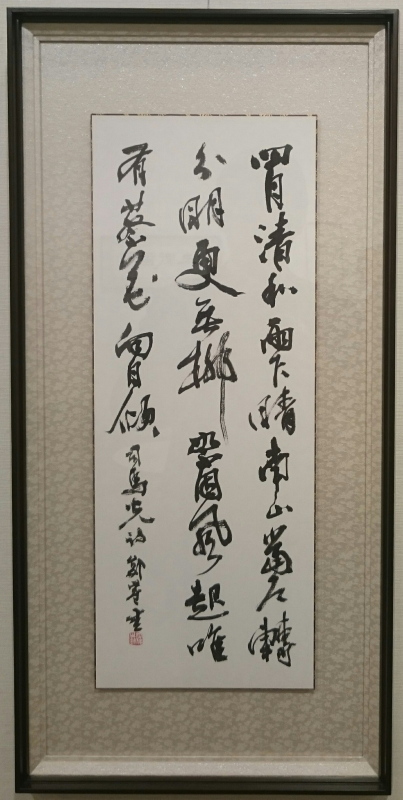 四月清和雨乍晴南山當戶轉
分明更無柳絮因風起唯
有葵花向日傾 司馬光詩 鄭